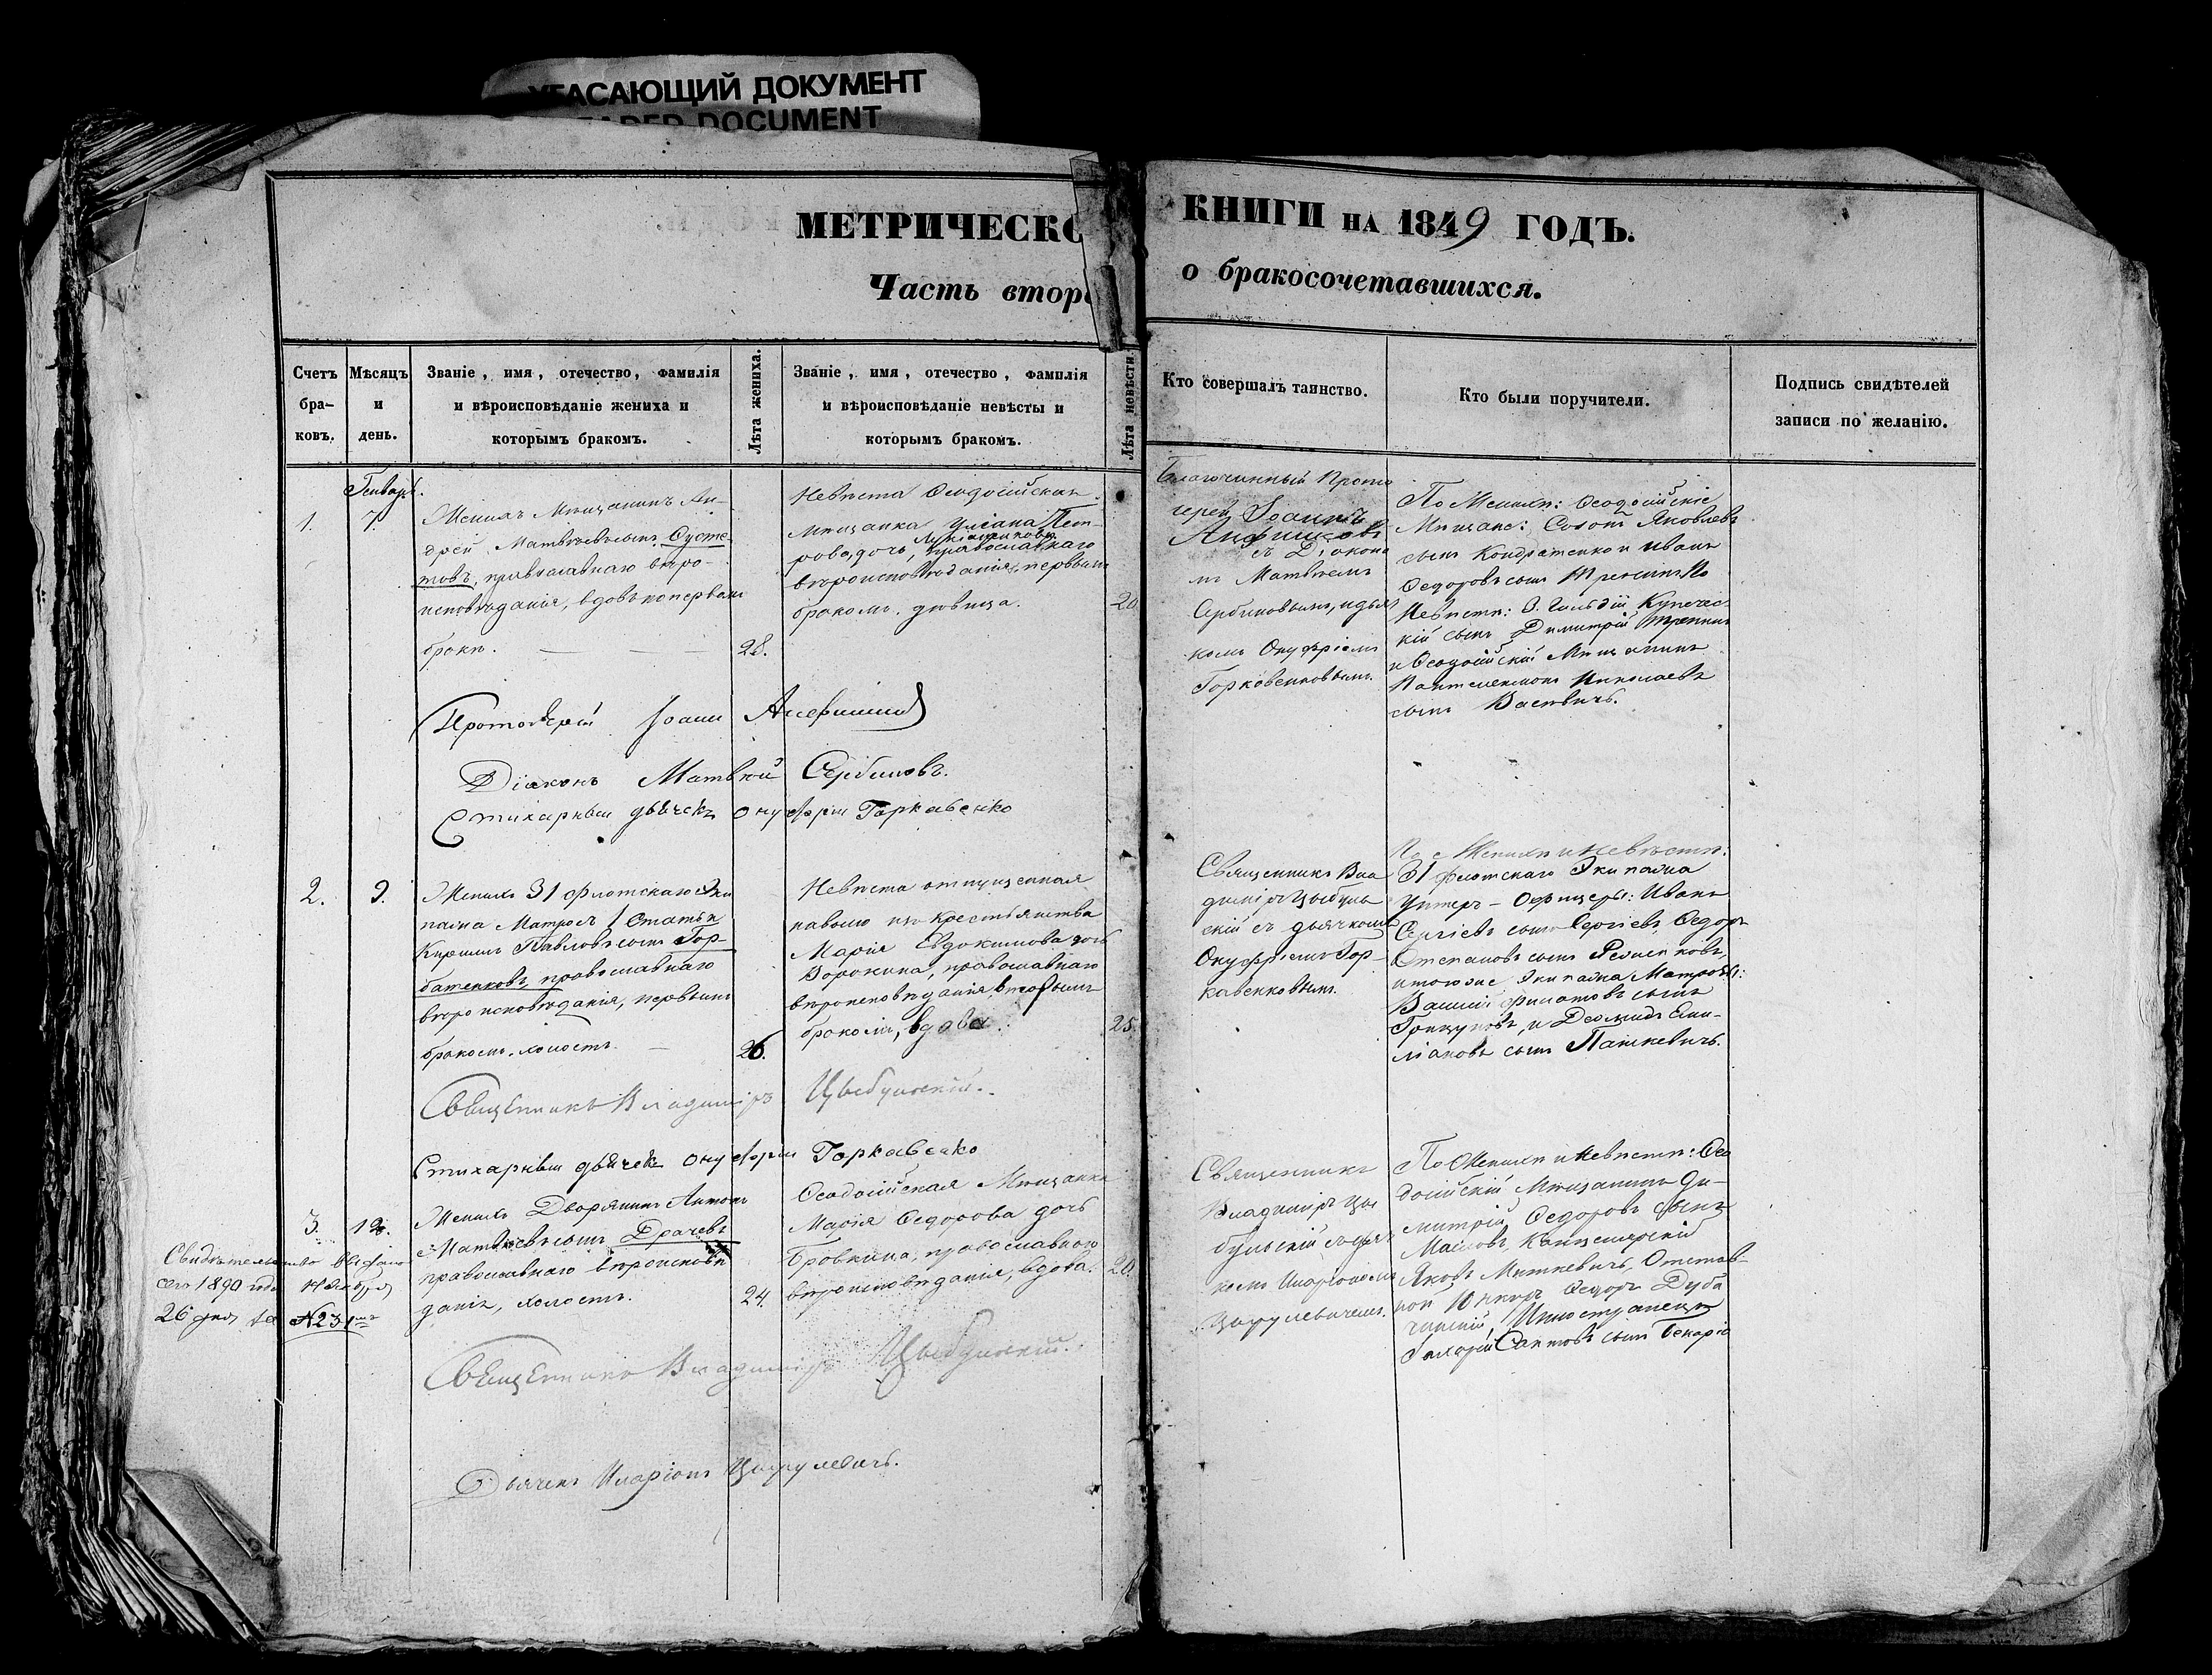 УГАСАЮЩИЙ ДОКУМЕНТ
FADED DOCUMENT
МЕТРИЧЕСКО
Часть втора
КНИГИ НА 1849 ГОДЪ.
о бракосочетавшихся.
Счетъ бра-ковъ.
Мѣсяцъ и день.
Званіе, имя, отечество, фамилія
и вѣроисповѣданіе жениха и
которымъ бракомъ.
Лѣта жениха.
Званіе, имя, отечество, фамилія
и вѣроисповѣданіе невѣсты и
которымъ бракомъ.
Лѣта невѣсты.
Кто совершалъ таинство.
Кто были поручители.
Подпись свидѣтелей
записи по желанію.
Генварь.
1. 7.
Женихъ Мѣщанинъ Ан-
дрей Матвѣевъ сынъ
православнаго вѣро-
исповѣданія, вдовъ по первомъ
бракѣ. 28.
Невѣста Ѳеодосійская
мѣщанка Уліана Пет-
рова дочь, православнаго
вѣроисповѣданія, первымъ
бракомъ. дѣвица. 20
Благочинный Прото
іерей Іоаннъ
съ Діакono
мъ Матвѣемъ
Сербиновымъ, и дьяч
комъ Онуфріемъ
Горковенковымъ.
По Женихѣ: Ѳеодосійскіе
Мѣщане: Яковлевъ
сынъ Кондратенко и Иванъ
Ѳедоровъ сынъ По
Невѣстѣ: 3. Гильдіи Купечес-
кій сынъ Димитрій
и Ѳеодосійскій Мѣщанинъ
Пантелеимонъ Николаевъ
сынъ
Протоіерей Іоаннъ
Діаконъ Матвѣй Сербиновъ.
Стихарный дьячекъ Онуфрій Горкавенко
2. 9.
Женихъ 31 флотскаго Эки
пажа Матросъ 1 Статьи
Кирилъ Павловъ сынъ Гор-
батенковъ, православнаго
вѣроисповѣданія, первымъ
бракомъ. холостъ. 26.
Невѣста отпущенная
на волю изъ крестьянства
Марія Евдокимова дочь
Воронина, православнаго
вѣроисповѣданія, вторымъ
бракомъ, вдова. 25.
Священникъ Вла
диміръ Цыбуль
скій съ дьячкомъ
Онуфріемъ Гор-
кавенковымъ.
По Женихѣ и Невѣстѣ:
31 флотскаго Экипажа
Унтеръ-Офицеры: Иванъ
Сергіевъ сынъ Сергіевъ, Ѳедоръ
Степановъ сынъ
и того же Экипажа Матрозы:
Василій Филатовъ сынъ
Грицуновъ, и Деомидъ Еми-
ліановъ сынъ Пашкевичъ.
Священникъ Владиміръ Цыбульскій.
Стихарный дьячекъ Онуфрій Горкавенко
3. 12.
Женихъ Дворянинъ Антонъ
Матвѣевъ сынъ Драчевъ
православнаго вѣроисповѣ
данія, холостъ. 24.
Ѳеодосійская Мѣщанка
Марія Ѳедорова дочь
Бровкина, православнаго
вѣроисповѣданія, вдова. 20.
Священникъ
Владиміръ Цы
бульскій съ дьяч
комъ Иларіономъ
По Женихѣ и Невѣстѣ: Ѳео
досійскій Мѣщанинъ Ди-
митрій Ѳедоровъ сынъ
Масловъ, Канцелярскій
Яковъ Миткевичъ, Отстав-
ной Юнкеръ Ѳедоръ Дуба
Иностранецъ
сынъ
Свидѣтельство выдано
сего 1890 года Ноября
26 дня за №231
Священникъ Владиміръ Цыбульскій.
Дьячекъ Иларіонъ